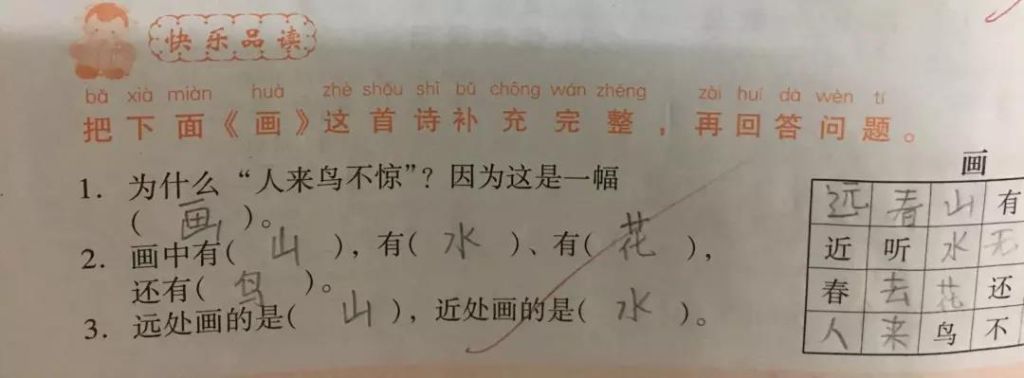 快乐品读
bǎ xià miàn huà zhè shǒu shī bǔ chōng wán zhěng zài huí dá wèn tí
把下面《画》这首诗补充完整，再回答问题。
1. 为什么“人来鸟不惊”？因为这是一幅
( 画 )。
2. 画中有( 山 )，有( 水 )、有( 花 )，
还有( 鸟 )。
3. 远处画的是( 山 )，近处画的是( 水 )。
画
远看山有
近听水无
春去花还
人来鸟不